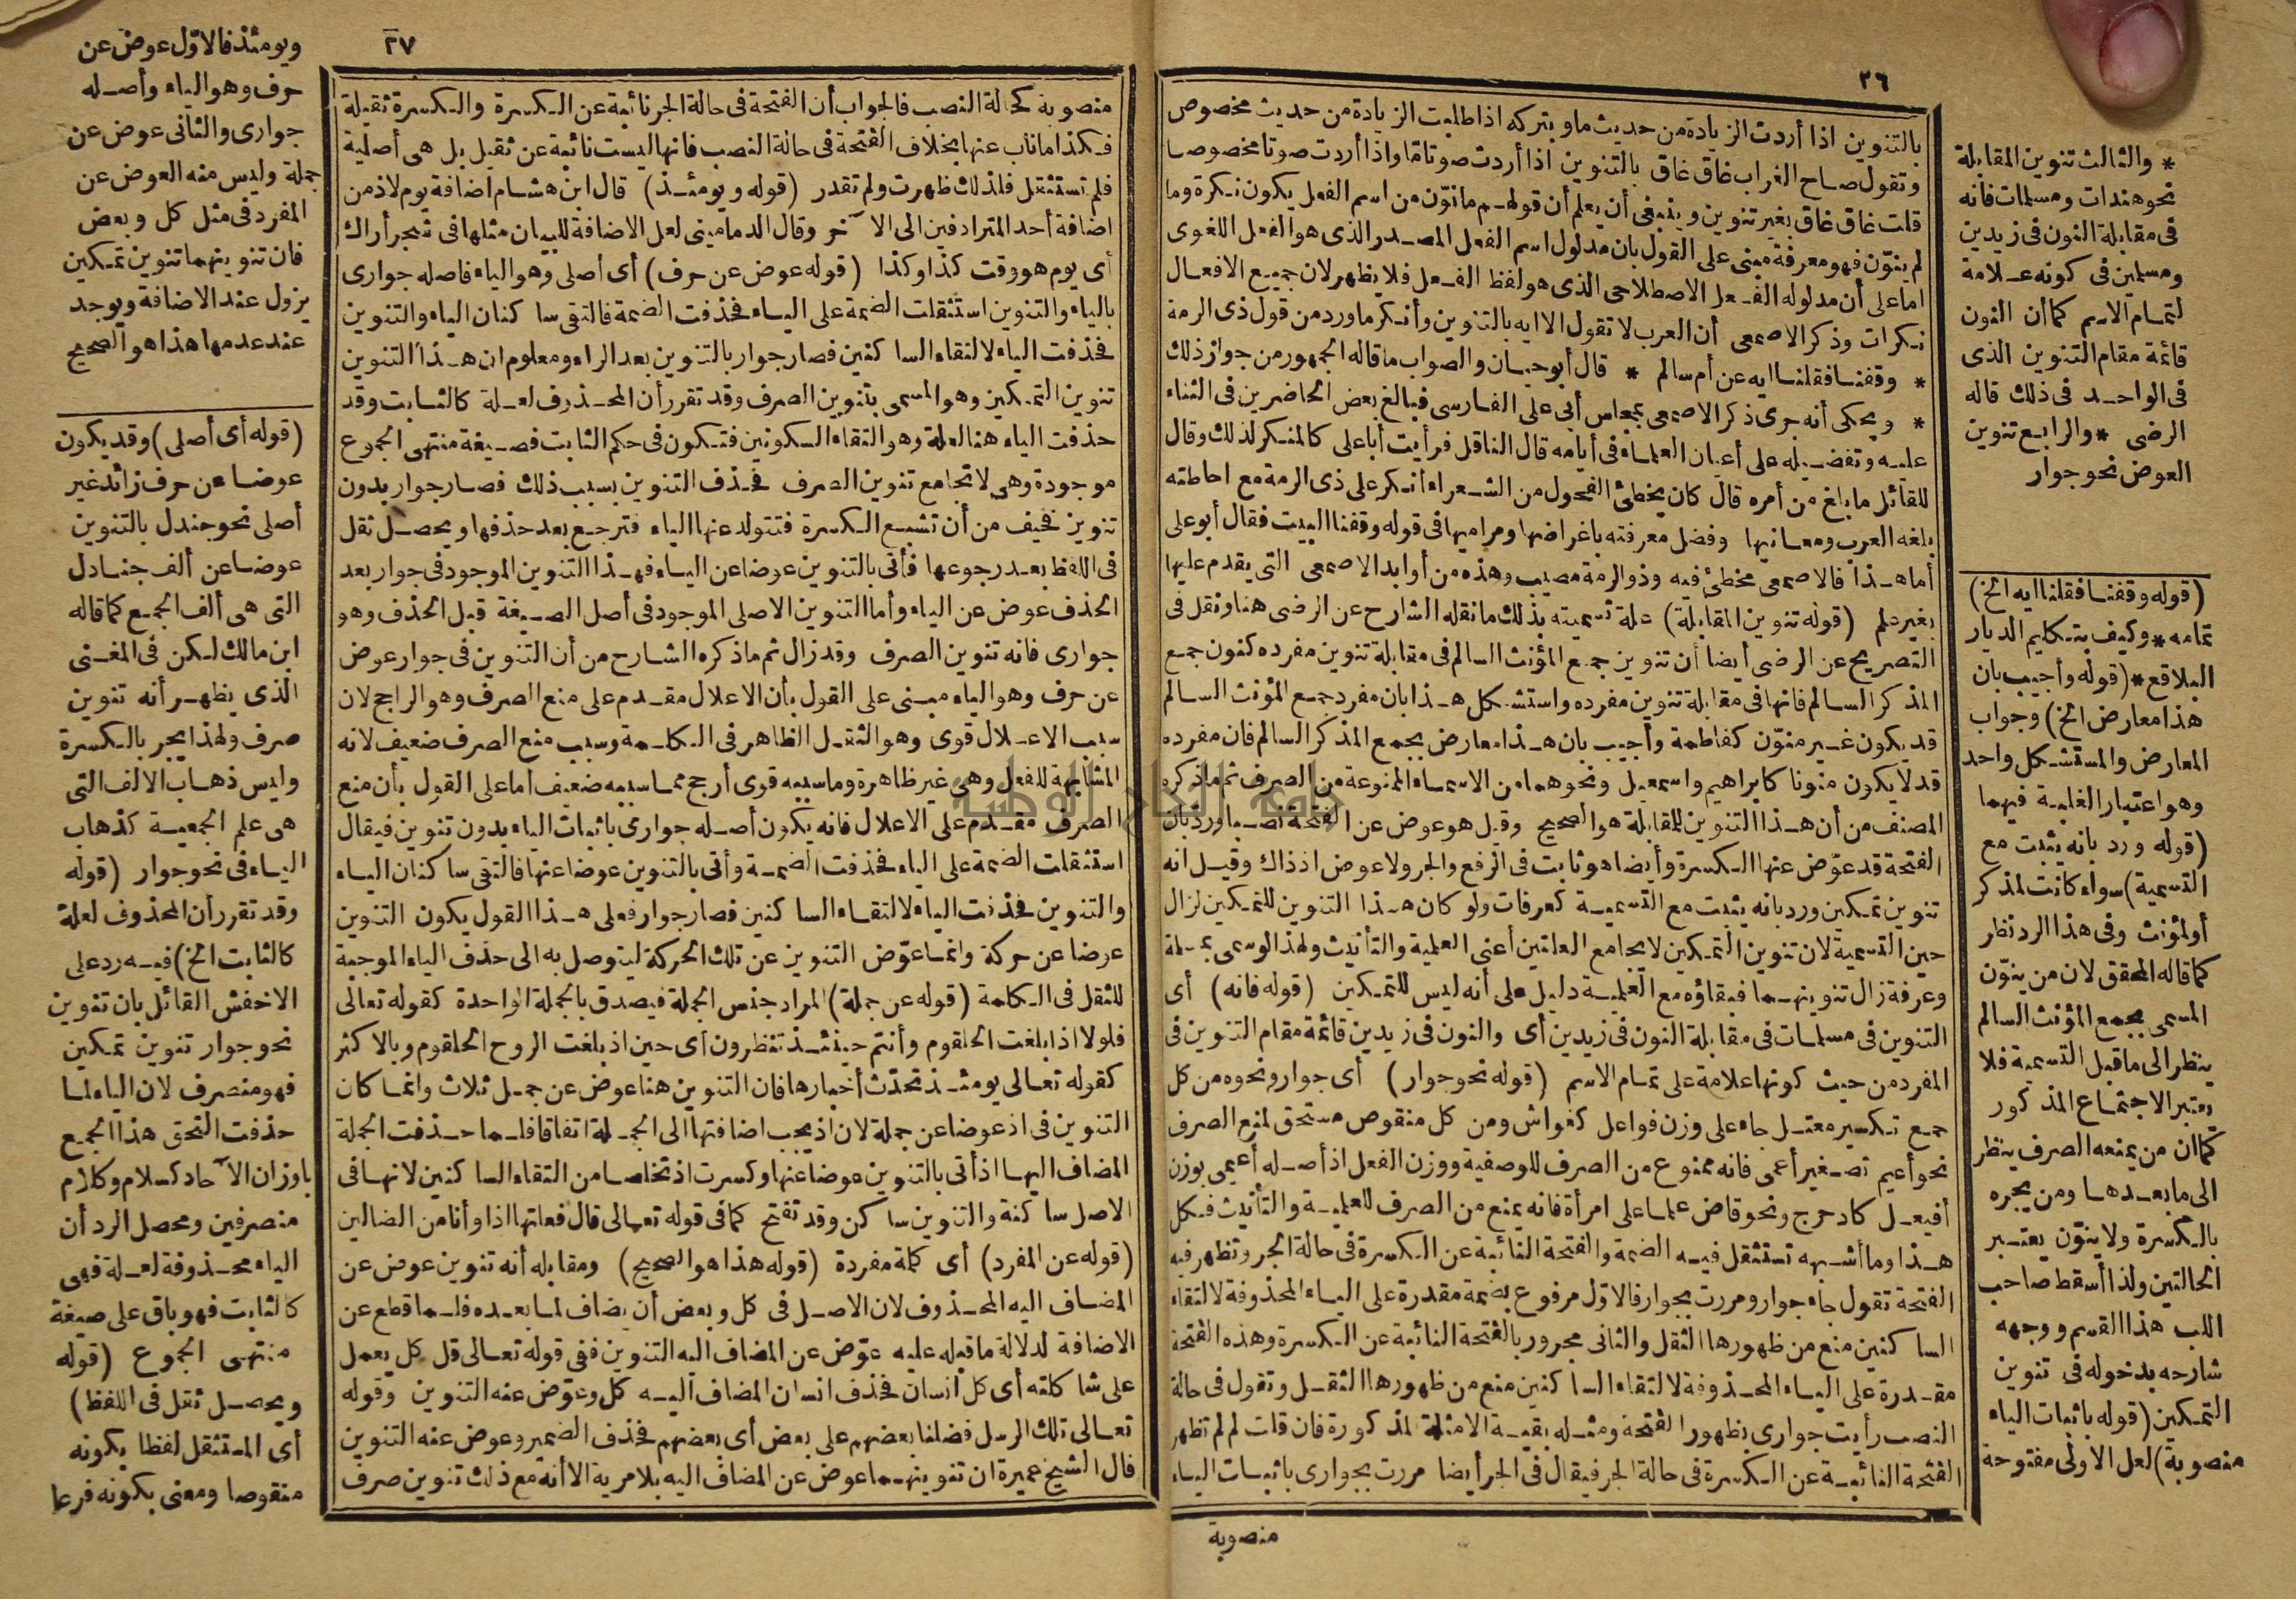 ٢٦
بالتنوين اذا أردت الزيادة من حديث ما وبتركه اذا طلبت الزيادة من حديث مخصوص
وتقول صاح الغراب غاق غاق بالتنوين اذا أردت صوتا ما واذا أردت صوتا مخصوصا
قلت غاق غاق بغير تنوين وينبغى أن يعلم أن قولهم ما نوّن من اسم الفعل يكون نكرة وما
لم ينوّن فهو معرفة مبنى على القول بان مدلول اسم الفعل المصدر الذى هو الفعل اللغوى
اما على أن مدلوله الفعل الاصطلاحى الذى هو لفظ الفعل فلا يظهر لان جميع الافعال
نكرات وذكر الاصمعى أن العرب لا تقول الا ايه بالتنوين وأنكر ما ورد من قول ذى الرمة
* وقفنا فقلنا ايه عن أم سالم * قال أبو حيان والصواب ما قاله الجمهور من جواز ذلك
* ويحكى أنه جرى ذكر الاصمعى بمجلس أبى على الفارسى فبالغ بعض الحاضرين فى الثناء
عليه وتفضيله على أعيان العلماء فى أيامه قال الناقل فرأيت أبا على كالمنكر لذلك وقال
للقائل ما بلغ من أمره قال كان يخطئ الفحول من الشعراء أنكر على ذى الرمة مع احاطته
بلغة العرب ومعانيها وفضل معرفته باغراضها ومراميها فى قوله وقفنا البيت فقال أبو على
أما هذا فالاصمعى مخطئ فيه وذو الرمة مصيب وهذه من أوابد الاصمعى التى يقدم عليها
بغير علم (قوله تنوين المقابلة) علة تسميته بذلك ما نقله الشارح عن الرضى هنا ونقل فى
التصريح عن الرضى أيضا أن تنوين جمع المؤنث السالم فى مقابلة تنوين مفرده كنون جمع
المذكر السالم فانها فى مقابلة تنوين مفرده واستشكل هذا بان مفرد جمع المؤنث السالم
قد يكون غير منوّن كفاطمة وأجيب بان هذا معارض بجمع المذكر السالم فان مفرده
قد لا يكون منونا كابراهيم واسمعيل ونحوهما من الاسماء الممنوعة من الصرف ثم ما ذكره
المصنف من أن هذا التنوين للمقابلة هو الصحيح وقيل هو عوض عن الفتحة نصبا ورد بان
الفتحة قد عوّض عنها الكسرة وأيضا هو ثابت فى الرفع والجر ولا عوض اذ ذاك وقيل انه
تنوين تمكين ورد بانه يثبت مع التسمية كعرفات ولو كان هذا التنوين للتمكين لزال
حين التسمية لان تنوين التمكين لا يجامع العلتين أعنى العلمية والتأنيث ولهذا لو سمى بمسلمة
وعرفة زال تنوينهما فبقاؤه مع العلمية دليل على أنه ليس للتمكين (قوله فانه) أى
التنوين فى مسلمات فى مقابلة النون فى زيدين أى والنون فى زيدين قائمة مقام التنوين فى
المفرد من حيث كونها علامة على تمام الاسم (قوله نحو جوار) أى جوار ونحوه من كل
جمع تكسير معتل جاء على وزن فواعل كغواش ومن كل منقوص مستحق لمنع الصرف
نحو أعيم تصغير أعمى فانه ممنوع من الصرف للوصفية ووزن الفعل اذ أصله أعيمى بوزن
أفيعل كادحرج ونحو قاض علما على امرأة فانه يمنع من الصرف للعلمية والتأنيث فكل
هذا وما أشبهه تستثقل فيه الضمة والفتحة النائبة عن الكسرة فى حالة الجر وتظهر فيه
الفتحة تقول جاء جوار ومررت بجوار فالاول مرفوع بضمة مقدرة على الياء المحذوفة لالتقاء
الساكنين منع من ظهورها الثقل والثانى مجرور بالفتحة النائبة عن الكسرة وهذه الفتحة
مقدرة على الياء المحذوفة لالتقاء الساكنين منع من ظهورها الثقل وتقول فى حالة
النصب رأيت جوارى بظهور الفتحة ومثله بقية الامثلة المذكورة فان قلت لم لم تظهر
الفتحة النائبة عن الكسرة فى حالة الجر فيقال فى الجر أيضا مررت بجوارى باثبات الياء
منصوبة
* والثالث تنوين المقابلة
نحو هندات ومسلمات فانه
فى مقابلة النون فى زيدين
ومسلمين فى كونه علامة
لتمام الاسم كما أن النون
قائمة مقام التنوين الذى
فى الواحد فى ذلك قاله
الرضى * والرابع تنوين
العوض نحو جوار
(قوله وقفنا فقلنا ايه الخ)
تمامه * وكيف بتكليم الديار
البلاقع * (قوله وأجيب بان
هذا معارض الخ) وجواب
المعارض والمستشكل واحد
وهو اعتبار الغلبة فيهما
(قوله ورد بانه يثبت مع
التسمية) سواء كانت لمذكر
أو لمؤنث وفى هذا الرد نظر
كما قاله المحقق لان من ينوّن
المسمى بجمع المؤنث السالم
ينظر الى ما قبل التسمية فلا
يعتبر الاجتماع المذكور
كما ان من يمنعه الصرف ينظر
الى ما بعدها ومن يجره
بالكسرة ولا ينوّن يعتبر
الحالتين ولذا أسقط صاحب
اللب هذا القسم ووجهه
شارحه بدخوله فى تنوين
التمكين (قوله باثبات الياء
منصوبة) لعل الاولى مفتوحة
٢٧
منصوبة كحالة النصب فالجواب أن الفتحة فى حالة الجر نائبة عن الكسرة والكسرة ثقيلة
فكذا ما ناب عنها بخلاف الفتحة فى حالة النصب فانها ليست نائبة عن ثقيل بل هى أصلية
فلم تستثقل فلذلك ظهرت ولم تقدر (قوله ويومئذ) قال ابن هشام اضافة يوم لاذ من
اضافة أحد المترادفين الى الآخر وقال الدمامينى لعل الاضافة للبيان مثلها فى شجر أراك
أى يوم هو وقت كذا وكذا (قوله عوض عن حرف) أى أصلى وهو الياء فاصله جوارى
بالياء والتنوين استثقلت الضمة على الياء فحذفت الضمة فالتقى ساكنان الياء والتنوين
فحذفت الياء لالتقاء الساكنين فصار جوار بالتنوين بعد الراء ومعلوم ان هذا التنوين
تنوين التمكين وهو المسمى بتنوين الصرف وقد تقرر أن المحذوف لعلة كالثابت وقد
حذفت الياء هنا لعلة وهو التقاء السكونين فتكون فى حكم الثابت فصيغة منتهى الجموع
موجودة وهى لا تجامع تنوين الصرف فحذف التنوين بسبب ذلك فصار جوار بدون
تنوين فخيف من أن تشبع الكسرة فتتولد عنها الياء فترجع بعد حذفها ويحصل ثقل
فى اللفظ بعد رجوعها فأتى بالتنوين عوضا عن الياء فهذا التنوين الموجود فى جوار بعد
الحذف عوض عن الياء وأما التنوين الاصلى الموجود فى أصل الصيغة قبل الحذف وهو
جوارى فانه تنوين الصرف وقد زال ثم ما ذكره الشارح من أن التنوين فى جوار عوض
عن حرف وهو الياء مبنى على القول بأن الاعلال مقدم على منع الصرف وهو الراجح لان
سبب الاعلال قوى وهو الثقل الظاهر فى الكلمة وسبب منع الصرف ضعيف لانه
المشابهة للفعل وهى غير ظاهرة وما سببه قوى أرجح مما سببه ضعيف أما على القول بأن منع
الصرف مقدم على الاعلال فانه يكون أصله جوارى باثبات الياء بدون تنوين فيقال
استثقلت الضمة على الياء فحذفت الضمة وأتى بالتنوين عوضا عنها فالتقى ساكنان الياء
والتنوين فحذفت الياء لالتقاء الساكنين فصار جوار فعلى هذا القول يكون التنوين
عوضا عن حركة وانما عوّض التنوين عن تلك الحركة ليتوصل به الى حذف الياء الموجبة
للثقل فى الكلمة (قوله عن جملة) المراد جنس الجملة فيصدق بالجملة الواحدة كقوله تعالى
فلولا اذا بلغت الحلقوم وأنتم حينئذ تنظرون أى حين اذ بلغت الروح الحلقوم وبالاكثر
كقوله تعالى يومئذ تحدّث أخبارها فان التنوين هنا عوض عن جمل ثلاث وانما كان
التنوين فى اذ عوضا عن جملة لان اذ يجب اضافتها الى الجملة اتفاقا فلما حذفت الجملة
المضاف اليها اذ أتى بالتنوين عوضا عنها وكسرت اذ تخلصا من التقاء الساكنين لانها فى
الاصل ساكنة والتنوين ساكن وقد تفتح كما فى قوله تعالى قال فعلتها اذا وأنا من الضالين
(قوله عن المفرد) أى كلمة مفردة (قوله هذا هو الصحيح) ومقابله أنه تنوين عوض عن
المضاف اليه المحذوف لان الاصل فى كل وبعض أن يضاف لما بعده فلما قطع عن
الاضافة لدلالة ما قبله عليه عوّض عن المضاف اليه التنوين ففى قوله تعالى قل كل يعمل
على شاكلته أى كل انسان فحذف انسان المضاف اليه كل وعوّض عنه التنوين وقوله
تعالى تلك الرسل فضلنا بعضهم على بعض أى بعضهم فحذف الضمير وعوض عنه التنوين
قال الشيخ عميرة ان تنوينهما عوض عن المضاف اليه بلا مرية الا أنه مع ذلك تنوين صرف
ويومئذ فالاوّل عوض عن
حرف وهو الياء وأصله
جوارى والثانى عوض عن
جملة وليس منه العوض عن
المفرد فى مثل كل وبعض
فان تنوينهما تنوين تمكين
يزول عند الاضافة ويوجد
عند عدمها هذا هو الصحيح
(قوله أى أصلى) وقد يكون
عوضا عن حرف زائد غير
أصلى نحو جندل بالتنوين
عوضا عن ألف جنادل
التى هى ألف الجمع كما قاله
ابن مالك لكن فى المغنى
الذى يظهر أنه تنوين
صرف ولهذا يجر بالكسرة
وليس ذهاب الالف التى
هى علم الجمعية كذهاب
الياء فى نحو جوار (قوله
وقد تقرر أن المحذوف لعلة
كالثابت الخ) فيه رد على
الاخفش القائل بان تنوين
نحو جوار تنوين تمكين
فهو منصرف لان الياء لما
حذفت التحق هذا الجمع
باوزان الآحاد كسلام وكلام
منصرفين ومحصل الرد أن
الياء محذوفة لعلة فهى
كالثابت فهو باق على صيغة
منتهى الجموع (قوله
ويحصل ثقل فى اللفظ)
أى المستثقل لفظا بكونه
منقوصا ومعنى بكونه فرعا